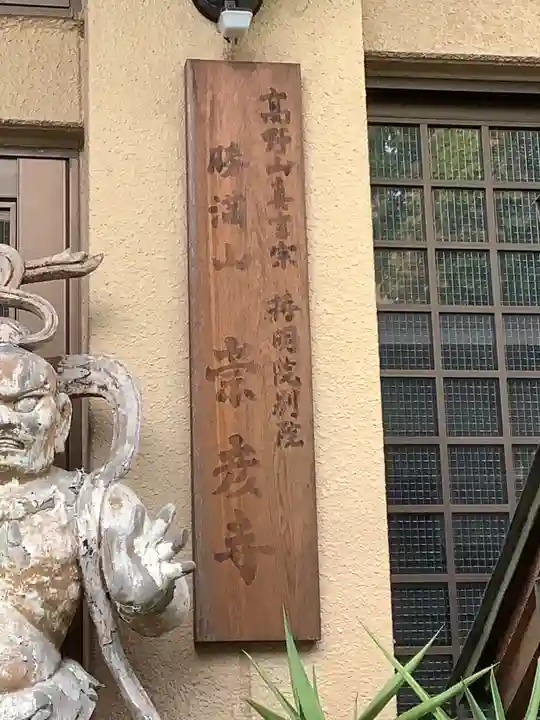 高野山真言宗 持明院別院
勝浦山 崇彦寺